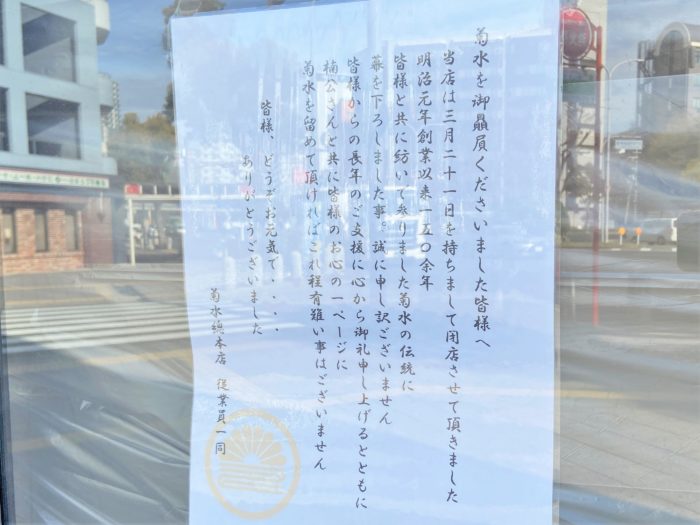 菊水を御贔屓くださいました皆様へ
当店は三月二十一日を持ちまして閉店させて頂きました
明治元年創業以来一五〇余年
皆様と共に紡いで参りました菊水の伝統に
幕を下ろしました事。誠に申し訳ございません
皆様からの長年のご支援に心から御礼申し上げるとともに
楠公さんと共に皆様のお心の一ページに
菊水を留めて頂ければこれ程有難い事はございません
皆様、どうぞお元気で・・・・
ありがとうございました
菊水總本店 従業員一同